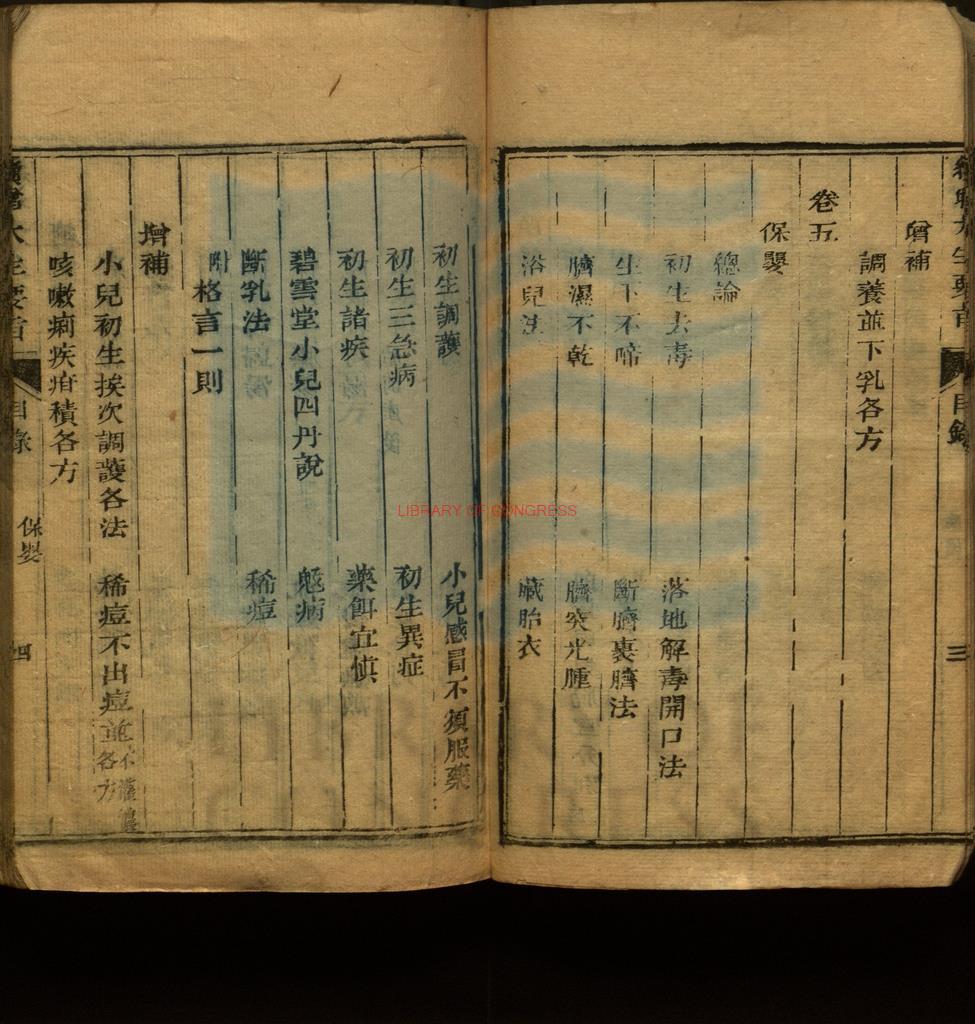 增補
調養並下乳各方
卷五
保嬰
總論
初生去毒 落地解毒開口法
生下不啼 斷臍裹臍法
臍濕不乾 臍突光腫
浴兒法 藏胎衣
目錄
三
初生調護 小兒感冒不須服藥
初生三急病 初生異症
初生諸疾 藥餌宜慎
碧雲堂小兒四丹說 鬾病
斷乳法 稀痘
附格言一則
增補
小兒初生挨次調護各法 稀痘不出痘並各方
咳嗽痢疾疳積各方
大生要旨 目錄 保嬰 四
LIBRARY OF CONGRESS